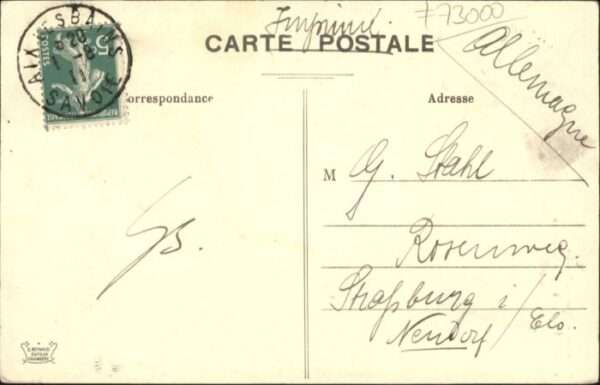 Imprimé.
773000
CARTE POSTALE
Allemagne
AIX-LES-BAINS
8 20
-8
11
SAVOIE
5
POSTES
Correspondance
Adresse
M G. Stahl
Rosenweg.
Straßburg i/
Neudorf Els.
GB.